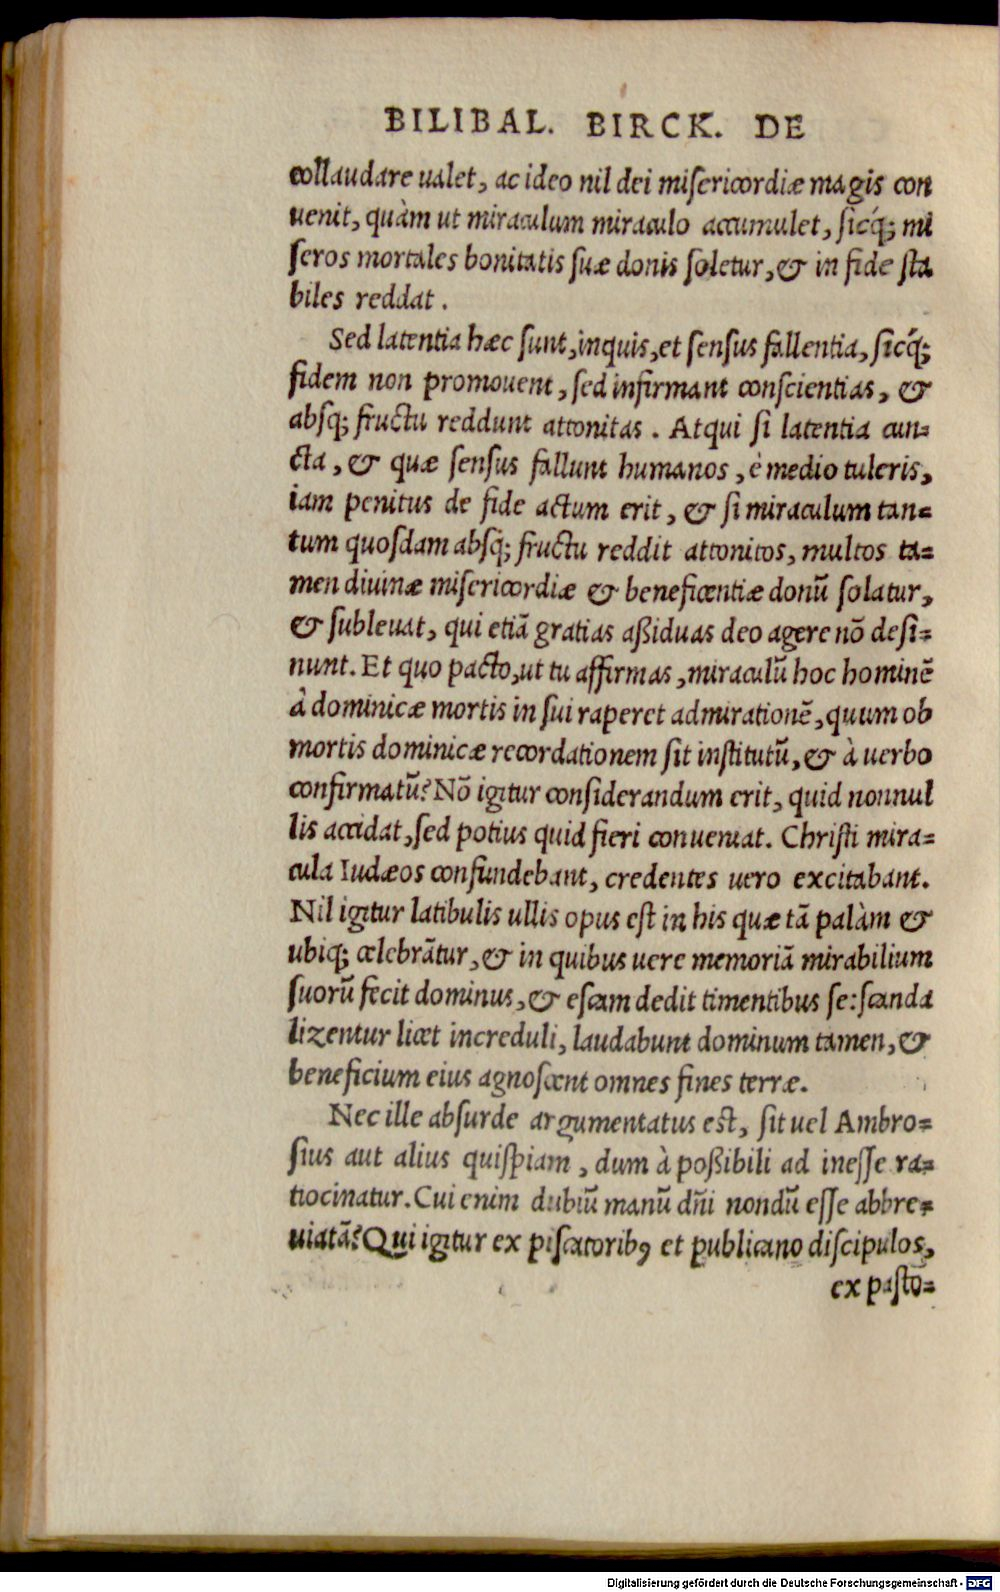 BILIBAL. BIRCK. DE
collaudare ualet, ac ideo nil dei misericordiæ magis con
uenit, quàm ut miraculum miraculo accumulet, sicq́; mi
seros mortales bonitatis suæ donis soletur, & in fide sta
biles reddat.
Sed latentia hæc sunt, inquis, et sensus fallentia, sicq́;
fidem non promouent, sed infirmant conscientias, &
absq; fructu reddunt attonitas. Atqui si latentia cun=
cta, & quæ sensus fallunt humanos, è medio tuleris,
iam penitus de fide actum erit, & si miraculum tan=
tum quosdam absq; fructu reddit attonitos, multos ta=
men diuinæ misericordiæ & beneficentiæ donū solatur,
& subleuat, qui etiā gratias aßiduas deo agere nō desi=
nunt. Et quo pacto, ut tu affirmas, miraculū hoc hominē
à dominicæ mortis in sui raperet admirationē, quum ob
mortis dominicæ recordationem sit institutū, & à uerbo
confirmatū? Nō igitur considerandum erit, quid nonnul
lis accidat, sed potius quid fieri conueniat. Christi mira=
cula Iudæos confundebant, credentes uero excitabant.
Nil igitur latibulis ullis opus est in his quæ tā palàm &
ubiq; celebrātur, & in quibus uere memoriā mirabilium
suorū fecit dominus, & escam dedit timentibus se: scanda
lizentur licet increduli, laudabunt dominum tamen, &
beneficium eius agnoscent omnes fines terræ.
Nec ille absurde argumentatus est, sit uel Ambro=
sius aut alius quispiam, dum à poßibili ad inesse ra=
tiocinatur. Cui enim dubiū manū dn̄i nondū esse abbre=
uiatā? Qui igitur ex piscatorib9 et publicano discipulos,
ex pasto=
Digitalisierung gefördert durch die Deutsche Forschungsgemeinschaft - DFG